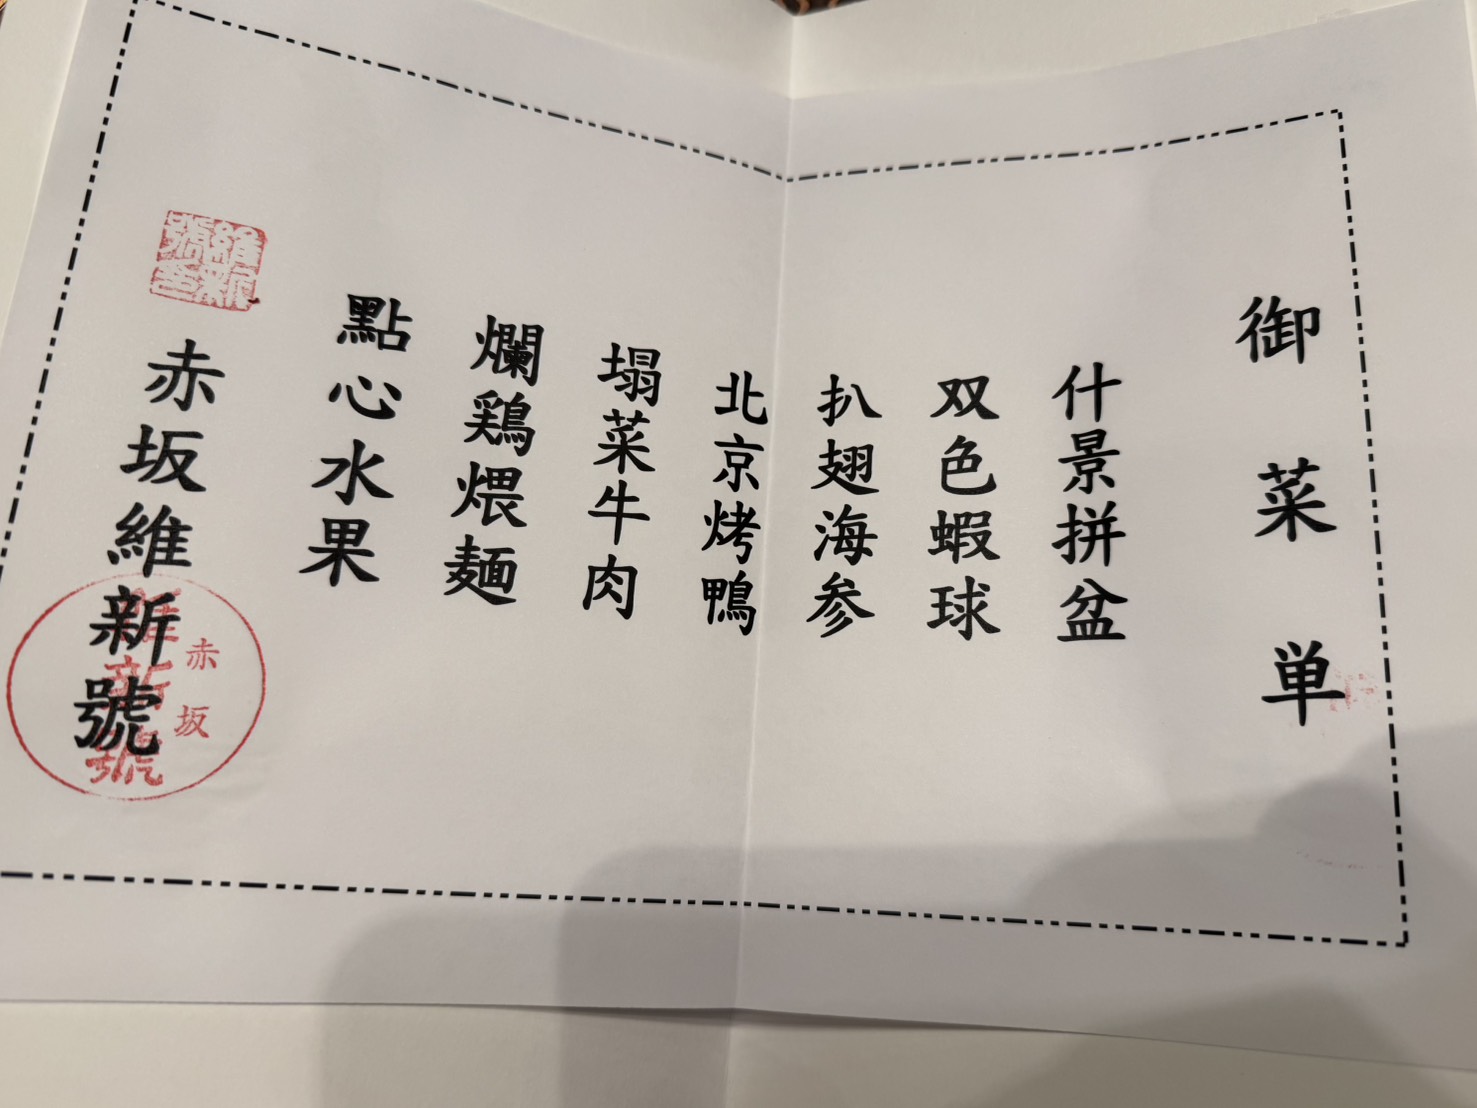 御菜単
什景拼盆
双色蝦球
扒翅海参
北京烤鴨
塌菜牛肉
爛鶏煨麺
點心水果
赤坂維新號
維新
號
赤坂
維新號